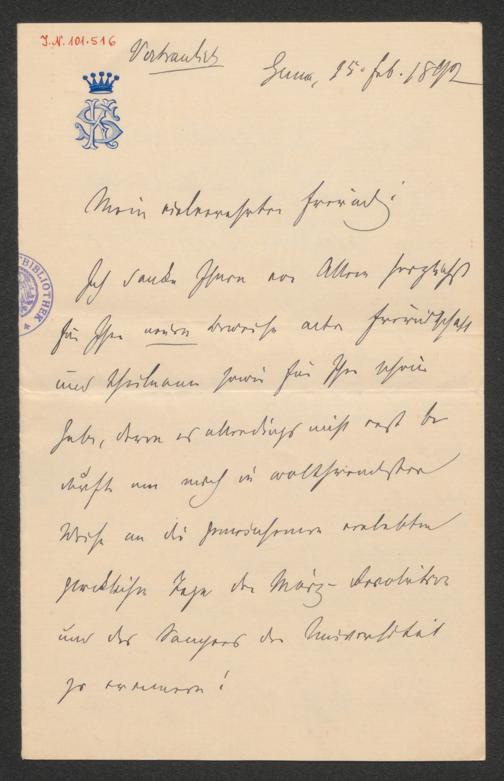 J.N. 101.516
Vertraulich
25. Feb. 1892
Mein vielverehrter Freund!
Ich danke Ihnen vor Allem herzlichst
für Ihre neuen Beweise alter Freundschaft
und Theilnahme sowie für Ihre schöne
Gabe, deren es allerdings nicht erst be
durfte um mich in wohlthuendster
Weise an die gemeinsamen verlebten
Tage der März-Revolution
und des Kampfes der Universität
zu erinnern!
BIBLIOTHEK